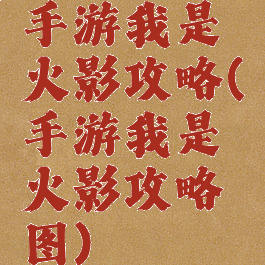 手游我是
火影攻略(
手游我是
火影攻略
图)